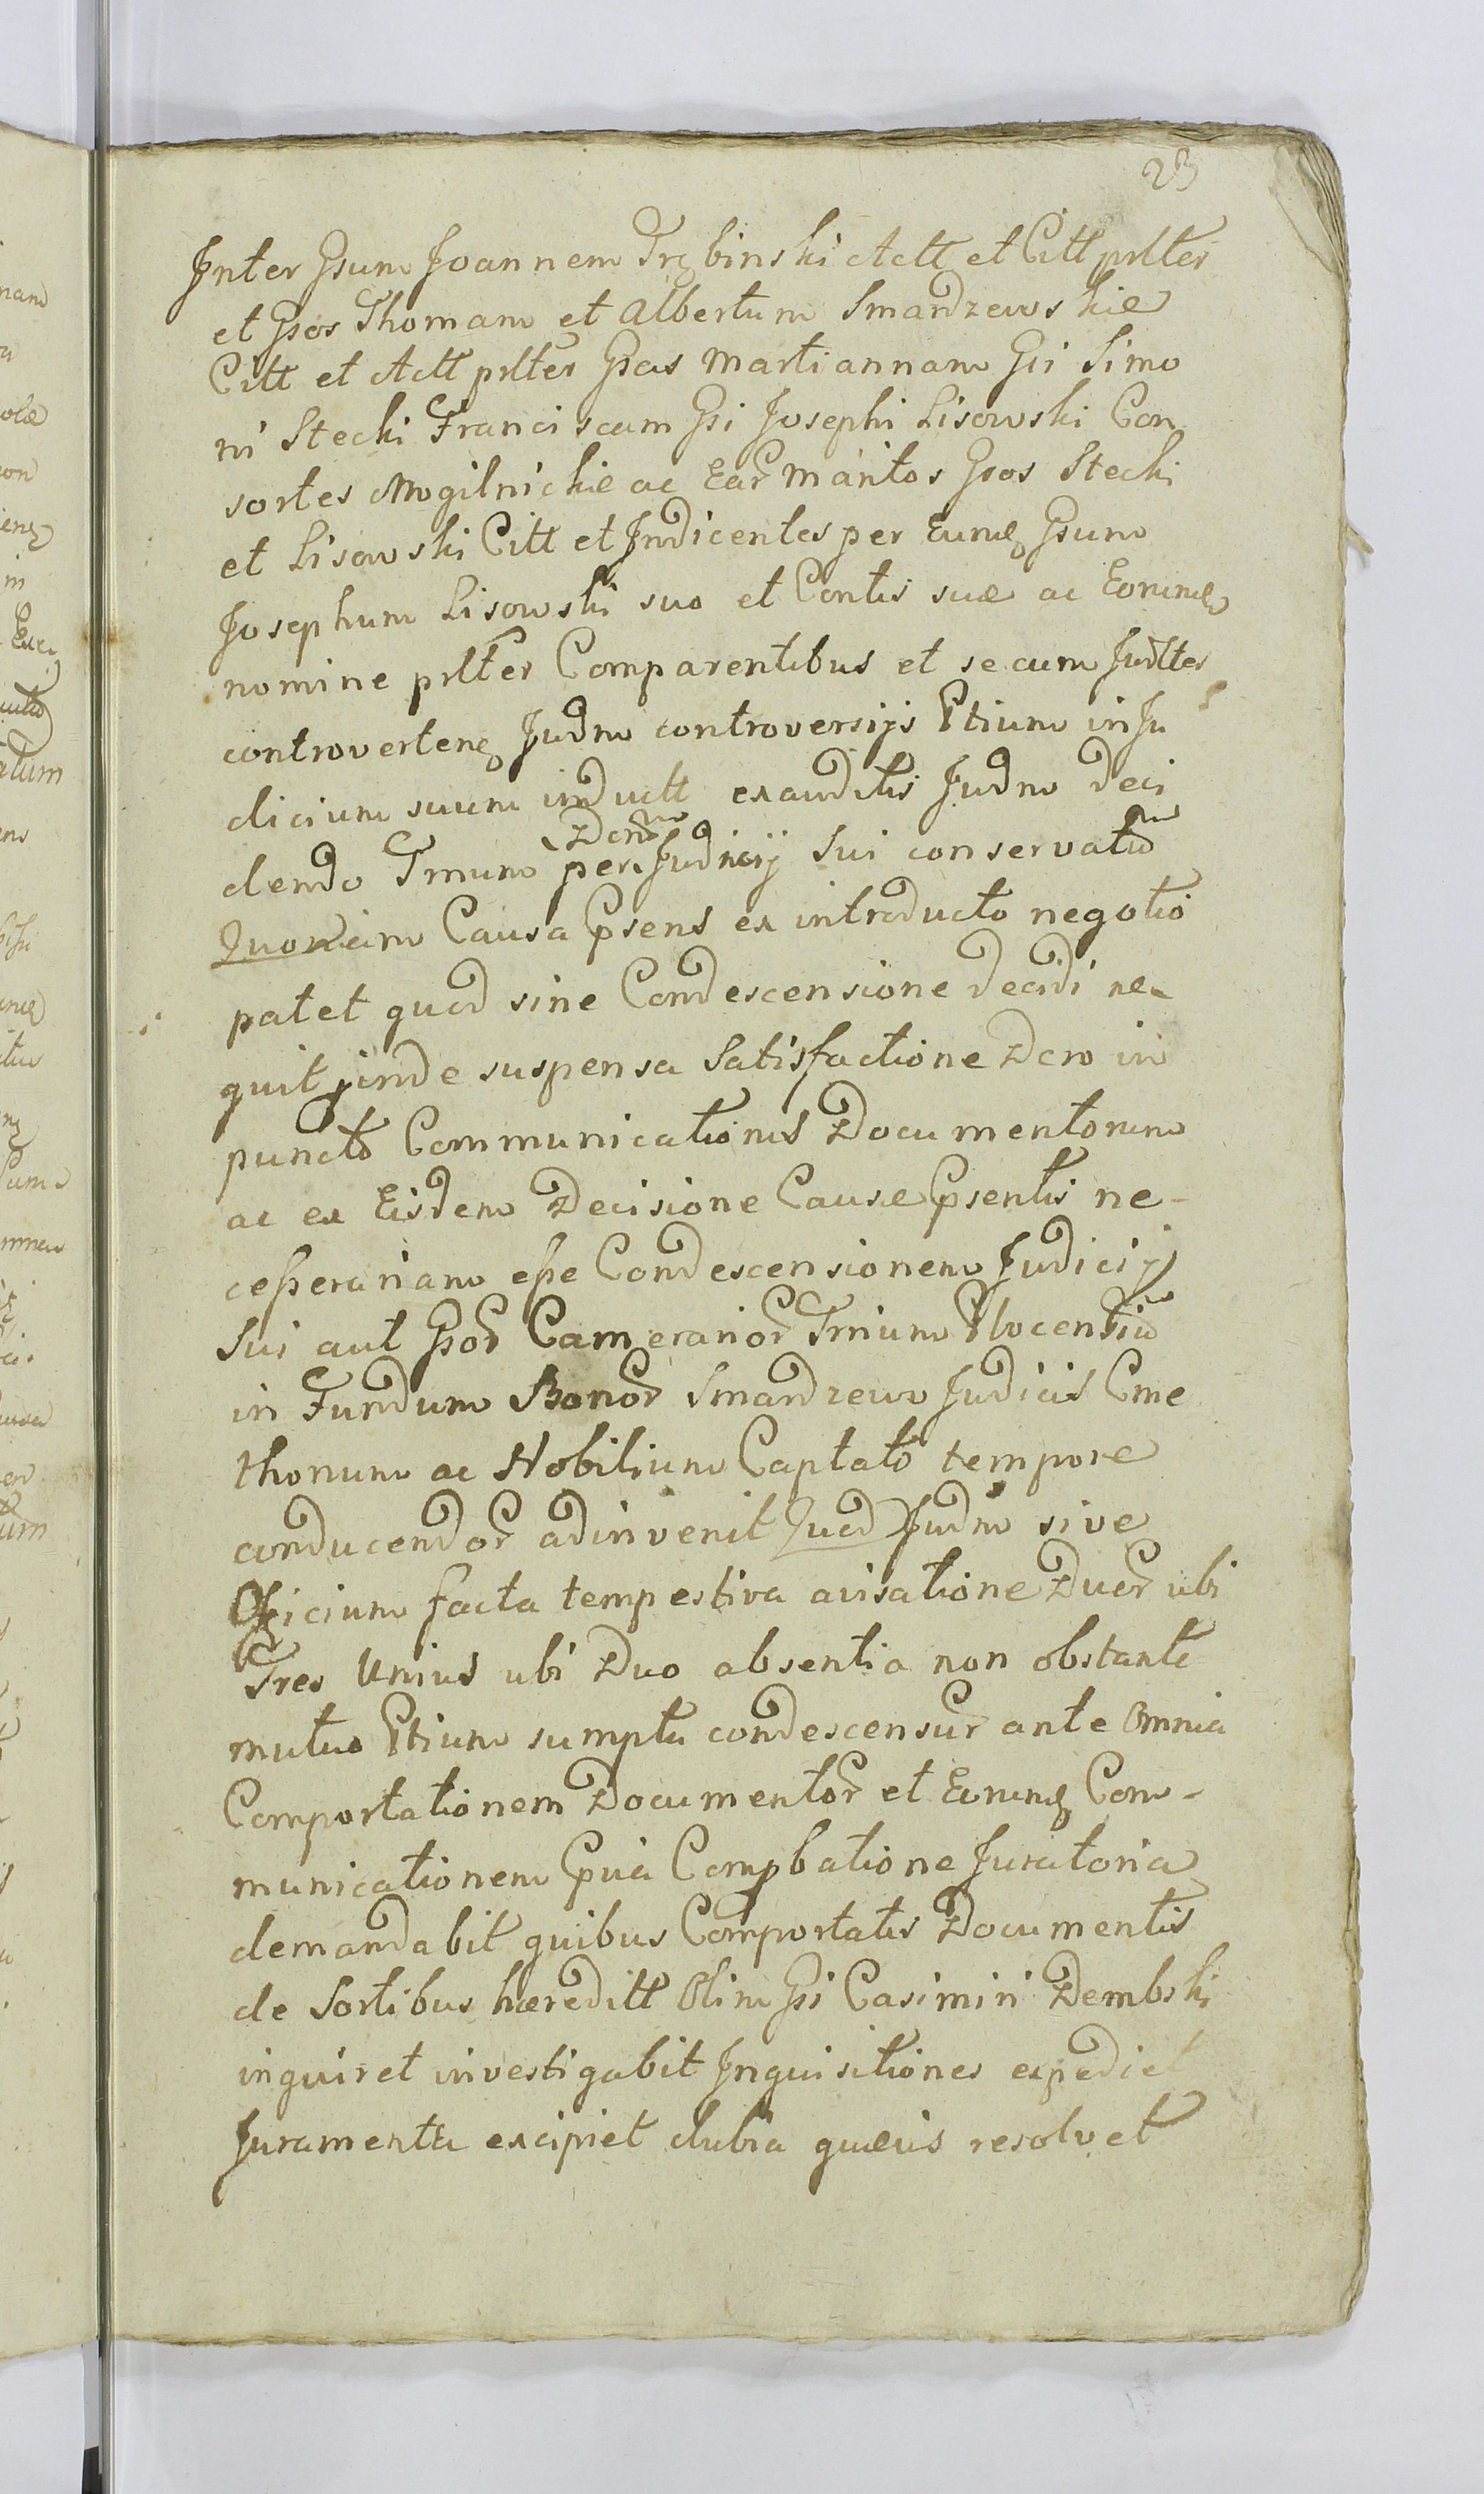 23
Inter Gsum Joannem Trębinski Actt et Citt prltter
et Gsos Thomam et Albertum Smardzewskie
Citt et Actt prltter Gsas Martiannam Gsi Simo
ni Stecki Franciscam Gsi Josephi Lisowski Con
sortes Mogilnickie ac Ear Maritos Gsos Stecki
et Lisowski Citt et Indicentes per Eumq Gsum
Josephum Lisowski suo et Contis suæ ac Eorumq
nomine prltter Comparentibus et secum Judtter
controverteng Judm controversijs Ptium in Ju
dicium suum inductt exauditis Judm deci
dendo Tmum per Dcm Judicij Sui conservatm
Quoniam Causa Psens ex introducto negotio
patet quod sine Condescensione decidi ne
quit jinde suspensa Satisfactione Dcro in
puncto Communicationis Documentorum
ac ex Eisdem Decisione Causæ Psentis ne-
cesserariam esse Condescensionem Judicij
Sui aut Gsor Camerarior Trium Plocensium
in Fundum Bonor Smardzewo Judicis Cme
thonum ac Nobilium Captato tempore
conducendor adinvenit Quod Judm sive
Officium facta tempestiva avisatione Duor ubi
Tres Unius ubi Duo absentia non obstante
mutuo Ptium sumptu condescensur ante Omnia
Comportationem Documentor et Eorumq Com-
municationem Pvia Compbatione Juratoria
demandabit quibus Comportatis Documentis
de Sortibus hæreditt Olim Gsi Casimiri Dembski
inquiret investigabit Inquisitiones expediet
Juramenta excipiet dubia quævis resolvet